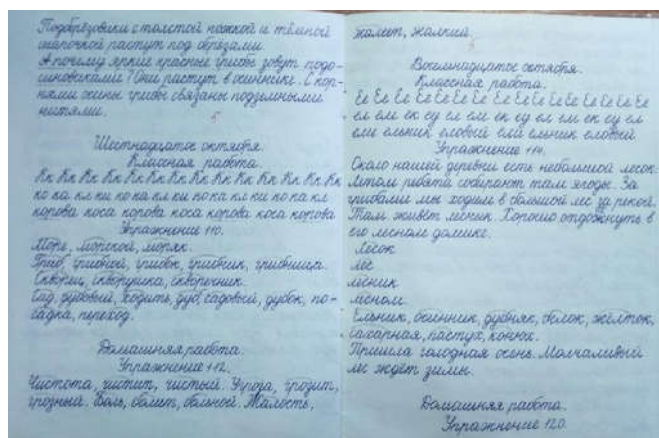 Подберёзовики с толстой ножкой и тёмной
шапочкой растут под берёзами.
А почему яркие красные грибы зовут подо-
синовиками? Они растут в осиннике. С кор-
нями осины грибы связаны подземными
нитями.
Шестнадцатое октября.
Классная работа.
Кк Кк Кк Кк Кк Кк Кк Кк Кк Кк Кк Кк Кк
ко ка кл ки ко ка кл ки ко ка кл ки ко ка кл
корова коса корова коса корова коса корова
Упражнение 110.
Море, морской, моряк.
Гриб, грибной, грибок, грибник, грибница.
Скворец, скворушка, скворечник.
Сад, дубовый, ходить, дуб, садовый, дубок, по-
садка, переход.
Домашняя работа.
Упражнение 112.
Чистота, чистит, чистый. Угроза, грозит,
грозный. Боль, болит, больной. Жалость,
жалеет, жалкий.
Восемнадцатое октября.
Классная работа.
Ее Ее Ее Ее Ее Ее Ее Ее Ее Ее Ее Ее Ее Ее
ел ем ек ед ел ем ек ед ел ем ек ед ел
ели ельник еловый ели ельник еловый
Упражнение 114.
Около нашей деревни есть небольшой лесок.
Летом ребята собирают там ягоды. За
грибами мы ходим в большой лес за рекой.
Там живёт лесник. Хорошо отдохнуть в
его лесном домике.
Лесок
лес
лесник
лесном.
Ельник, осинник, дубняк, белок, желток,
сахарная, пастух, конюх.
Пришла голодная осень. Молчаливый
лес ждёт зимы.
Домашняя работа.
Упражнение 120.